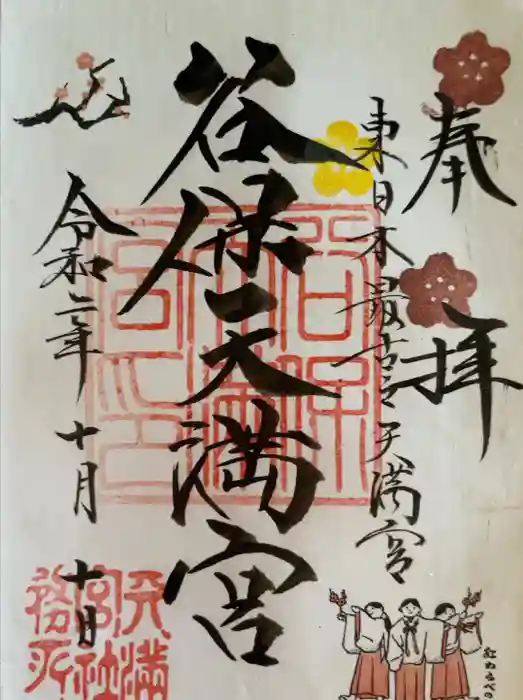 奉拝
東日本最古之天満宮
谷保天満宮
令和二年十月十日
天満宮社務所